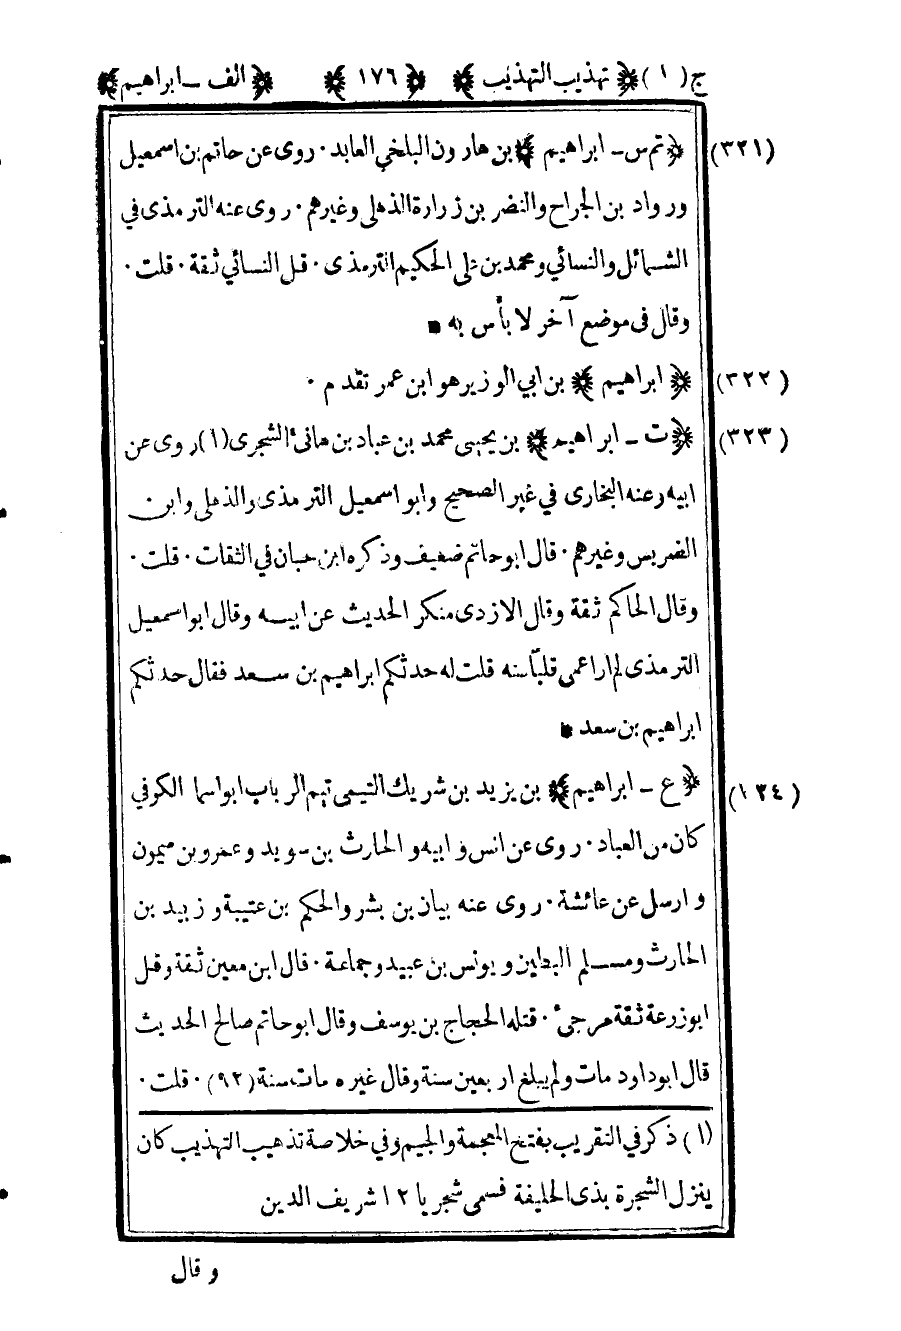 ج (١) ﴿تهذيب التهذيب﴾ ﴿١٧٦﴾ ﴿الف ــ ابراهيم﴾
(٣٢١) ﴿تم س ــ ابراهيم﴾ بن هارون البلخي العابد · روى عن حاتم بن اسمعيل
ورواد بن الجراح والنضر بن زرارة الذهلى وغيرهم · روى عنه الترمذى في
الشمائل والنسائي ومحمد بن علي الحكيم الترمذى · قل النسائي ثقة · قلت ·
وقال فى موضع آخر لا بأس به ■
(٣٢٢) ﴿ابراهيم﴾ بن ابي الوزير هو ابن عمر تقدم ·
(٣٢٣) ﴿ت ــ ابراهيم﴾ بن يحيى محمد بن عباد بن هانئ الشجرى (١) روى عن
ابيه وعنه البخارى في غير الصحيح وابو اسمعيل الترمذى والذهلى وابن
الضريس وغيرهم · قال ابو حاتم ضعيف وذكره ابن حبان في الثقات · قلت ·
وقال الحاكم ثقة وقال الازدى منكر الحديث عن ابيــه وقال ابو اسمعيل
الترمذى لم ار اعمى قلبًا منه قلت له حدثكم ابراهيم بن سـعد فقال حدثكم
ابراهيم بن سعد ■
(١٣٤) ﴿ع ــ ابراهيم﴾ بن يزيد بن شريك التيمى تيم الرباب ابو اسما الكوفي
كان من العباد · روى عن انس و ابيه و الحارث بن سويد وعمرو بن ميمون
و ارسل عن عائشة · روى عنه بيان بن بشر والحكم بن عتيبة و زبيد بن
الحارث ومسـلم البطين و يونس بن عبيد وجماعة · قال ابن معين ثقة وقل
ابو زرعة ثقة مرجئ · قتله الحجاج بن يوسف وقال ابو حاتم صالح الحديث
قال ابو داود مات ولم يبلغ اربعين سنة وقال غيره مات سنة (٩٢) · قلت ·
(١) ذكر في التقريب بفتح المعجمة والجيم وفي خلاصة تذهيب التهذيب كان
ينزل الشجرة بذى الحليفة فسمى شجريا ١٢ شريف الدين
و قال